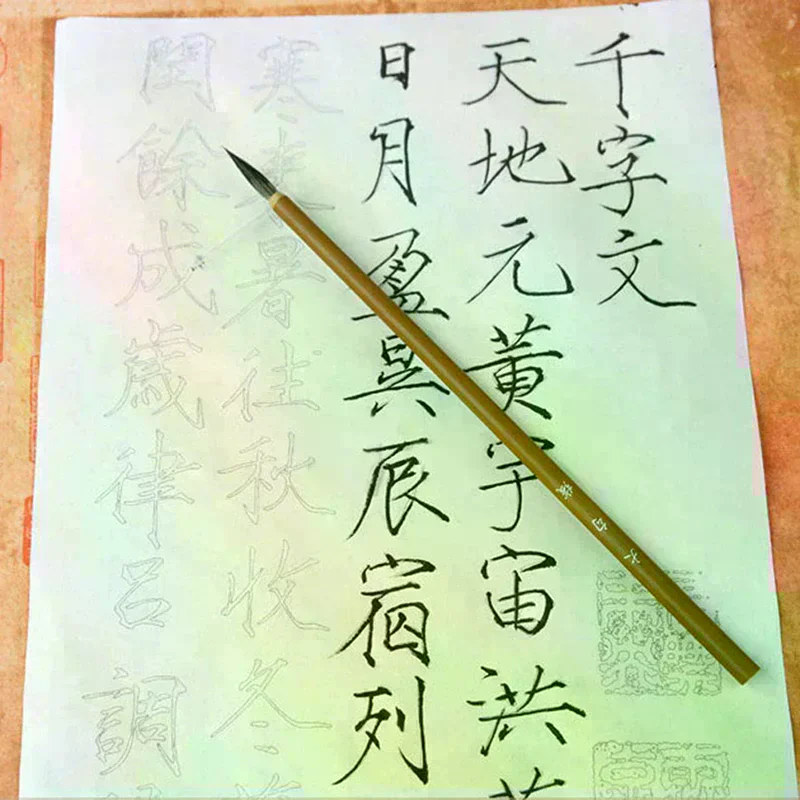 千字文
天地元黃宇宙洪
日月盈昃辰宿列
寒来暑往秋收冬
閏餘成歲律呂調